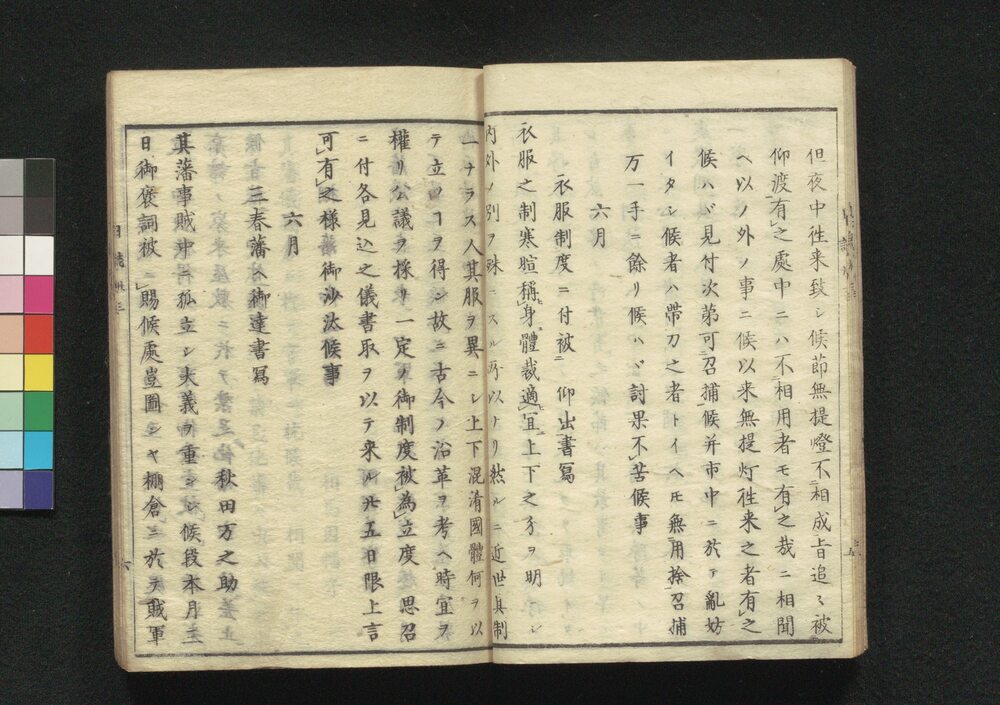 但夜中徃来致シ候節無提燈不相成旨追々被
仰渡有之處中ニハ不相用者モ有之哉ニ相聞
ヘ以ノ外ノ事ニ候以来無提灯徃来之者有之
候ハヾ見付次第可召捕候并市中ニ於テ亂妨
イタシ候者ハ帯刀之者トイヘ𪜈無用捨召捕
万一手ニ餘リ候ハヾ討果不苦候事
六月
衣服制度ニ付被 仰出書寫
衣服之制寒暄稱身體裁適宜上下之分ヲ明ニシ
内外ノ別ヲ殊ニスル所以ナリ然ルニ近世其制
一ナラス人其服ヲ異ニシ上下混淆國體何ヲ以
テ立ヿヲ得ン故ニ古今ノ沿革ヲ考ヘ時宜ヲ
權リ公議ヲ採リ一定ノ御制度被為立度思召
ニ付各見込之儀書取ヲ以テ来ル廿五日限上言
可有之様御沙汰候事
六月
三春藩ヘ御達書寫
秋田万之助
其藩事賊中ニ孤立シ大義ヲ重シ候段本月三
日御褒詞被賜候處豈圖ンヤ棚倉ニ於テ賊軍
日誌
六